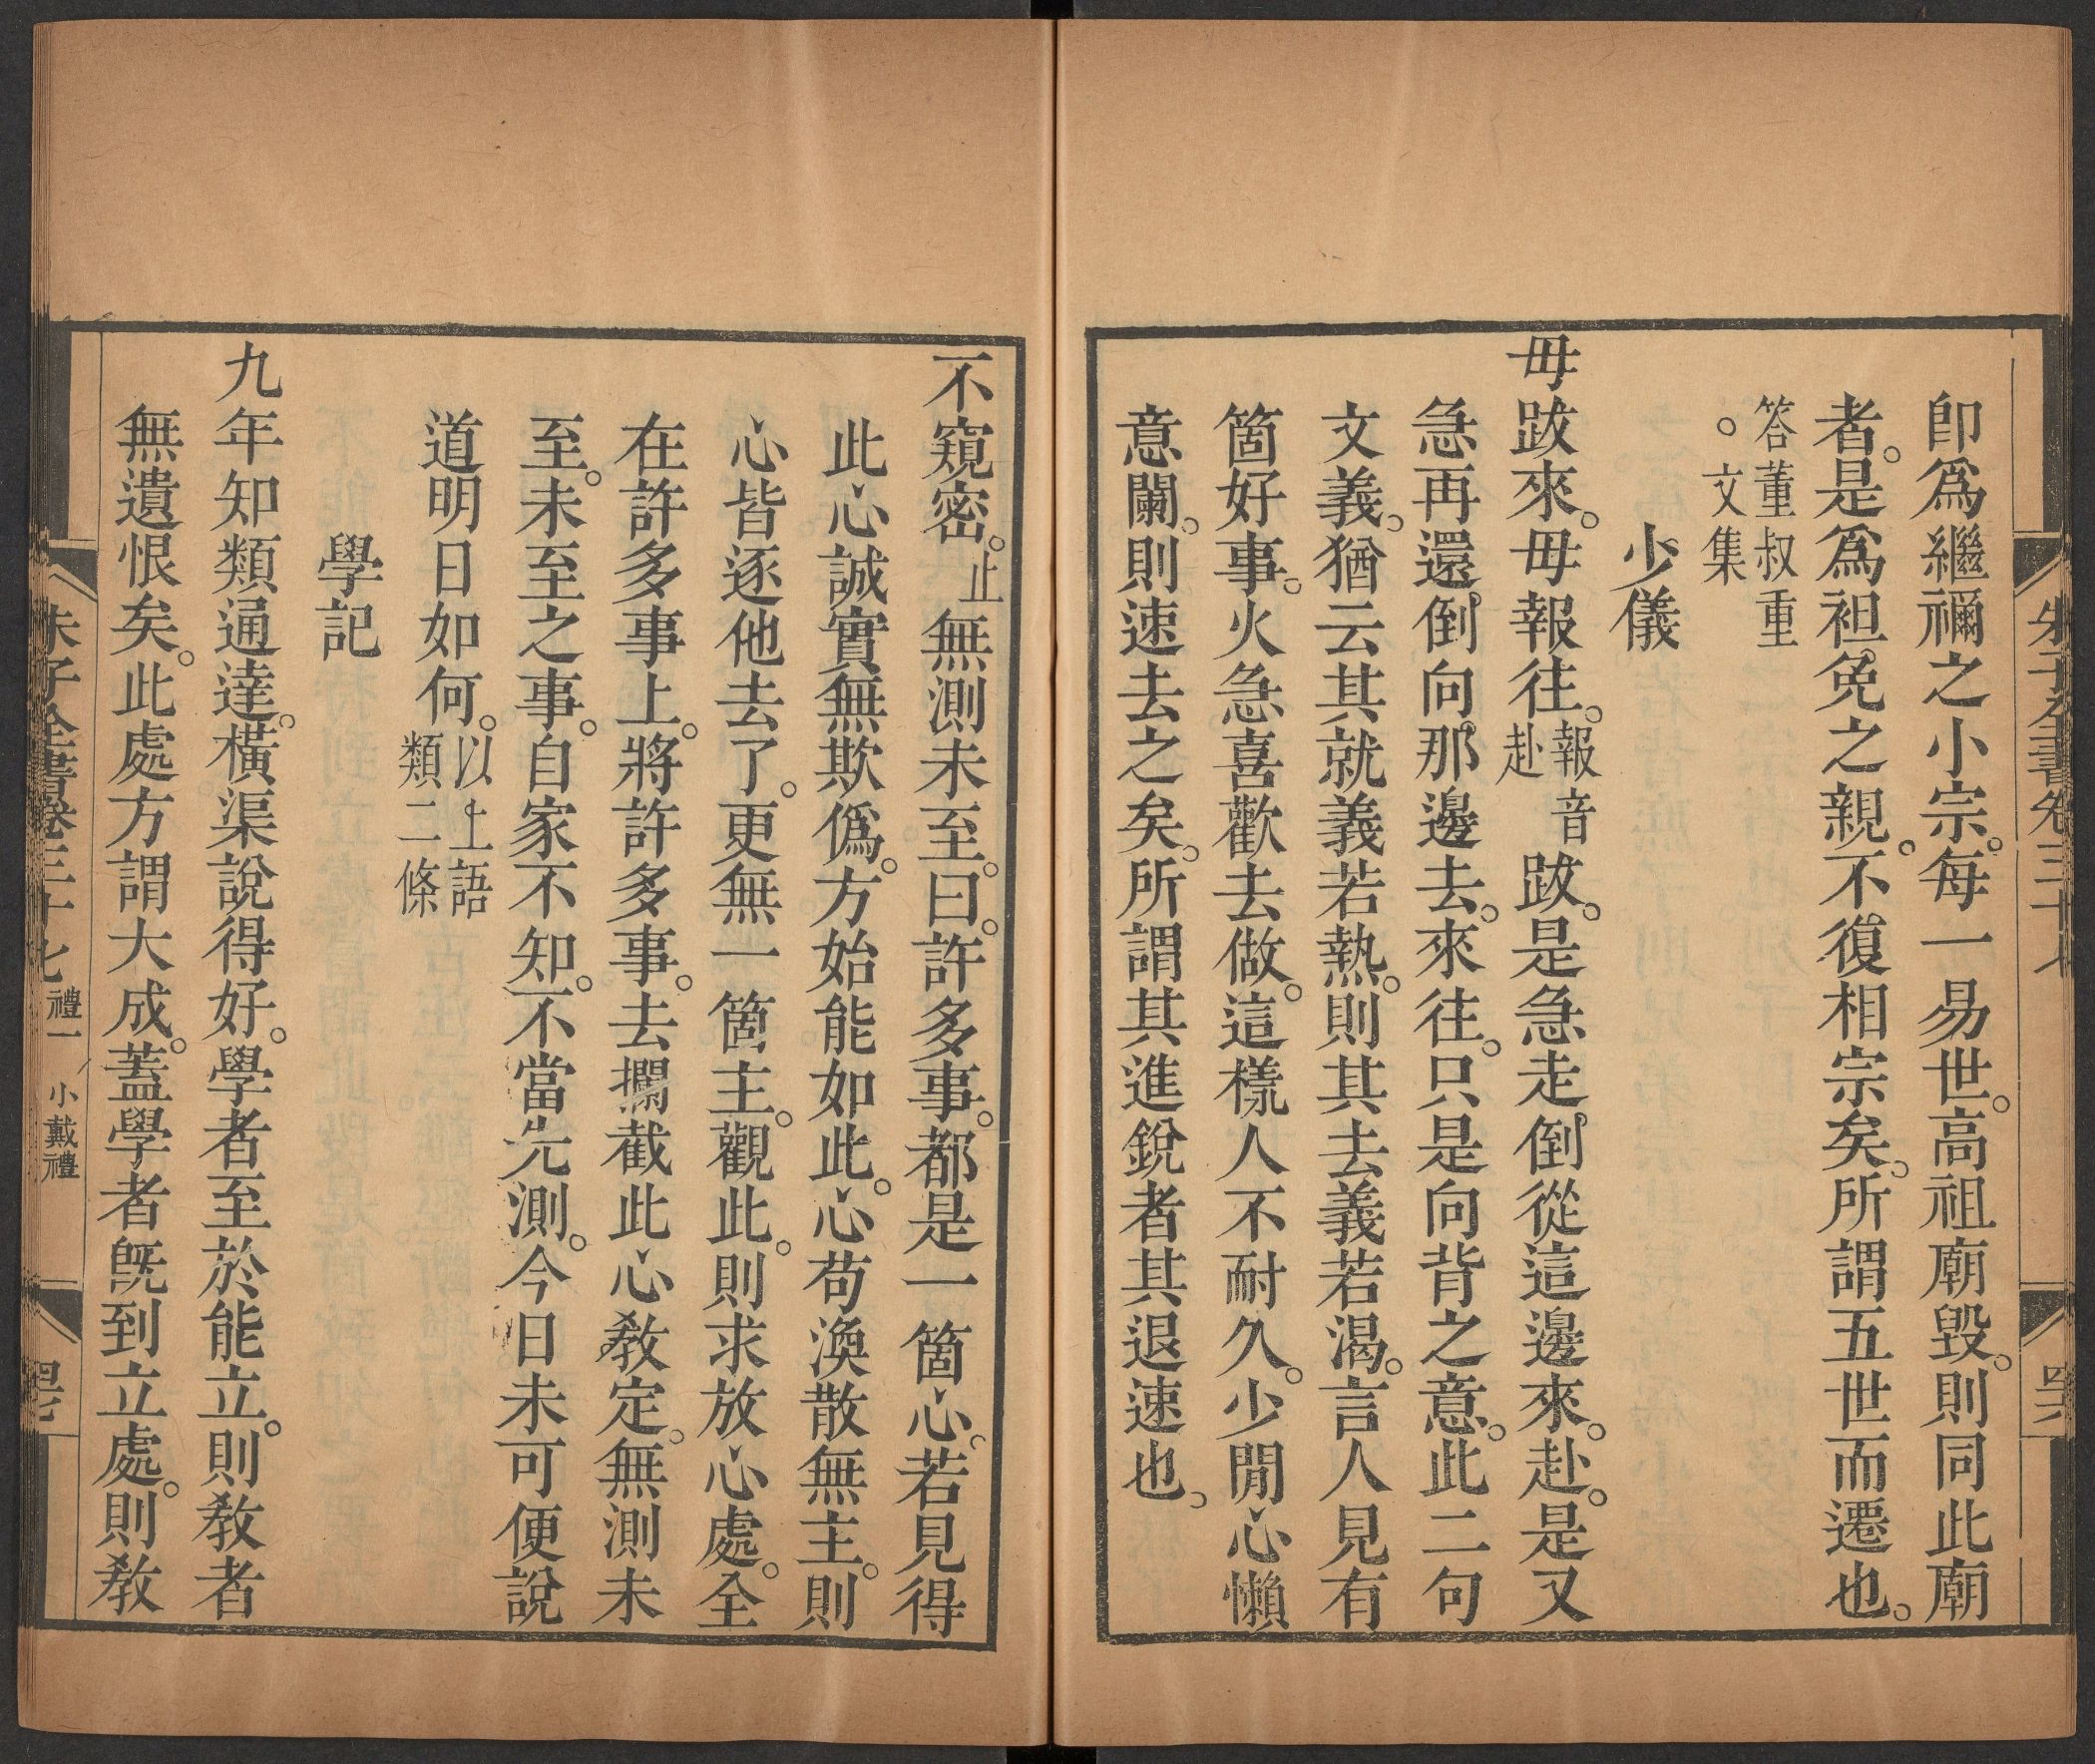 卽爲繼禰之小宗。每一易世。高祖廟毀。則同此廟
者。是爲袒免之親。不復相宗矣。所謂五世而遷也。
答董叔重
。文集
少儀
毋跋來。毋報往。報音赴跋。是急走倒從這邊來。赴。是又
急再還倒向那邊去。來往。只是向背之意。此二句
文義。猶云其就義若熱。則其去義若渴。言人見有
箇好事。火急喜歡去做。這樣人不耐久。少閒心懶
意闌。則速去之矣。所謂其進銳者其退速也。
不窺密。止無測未至。曰。許多事。都是一箇心。若見得
此心誠實無欺僞。方始能如此。心苟渙散無主。則
心皆逐他去了。更無一箇主。觀此。則求放心處。全
在許多事上。將許多事。去攔截此心敎定。無測未
至。未至之事。自家不知。不當先測。今日未可便說
道明日如何。以上語類二條
學記
九年知類通達。橫渠說得好。學者至於能立。則敎者
無遺恨矣。此處方謂大成。蓋學者旣到立處。則敎
朱子全書卷三十七 禮一 小戴禮